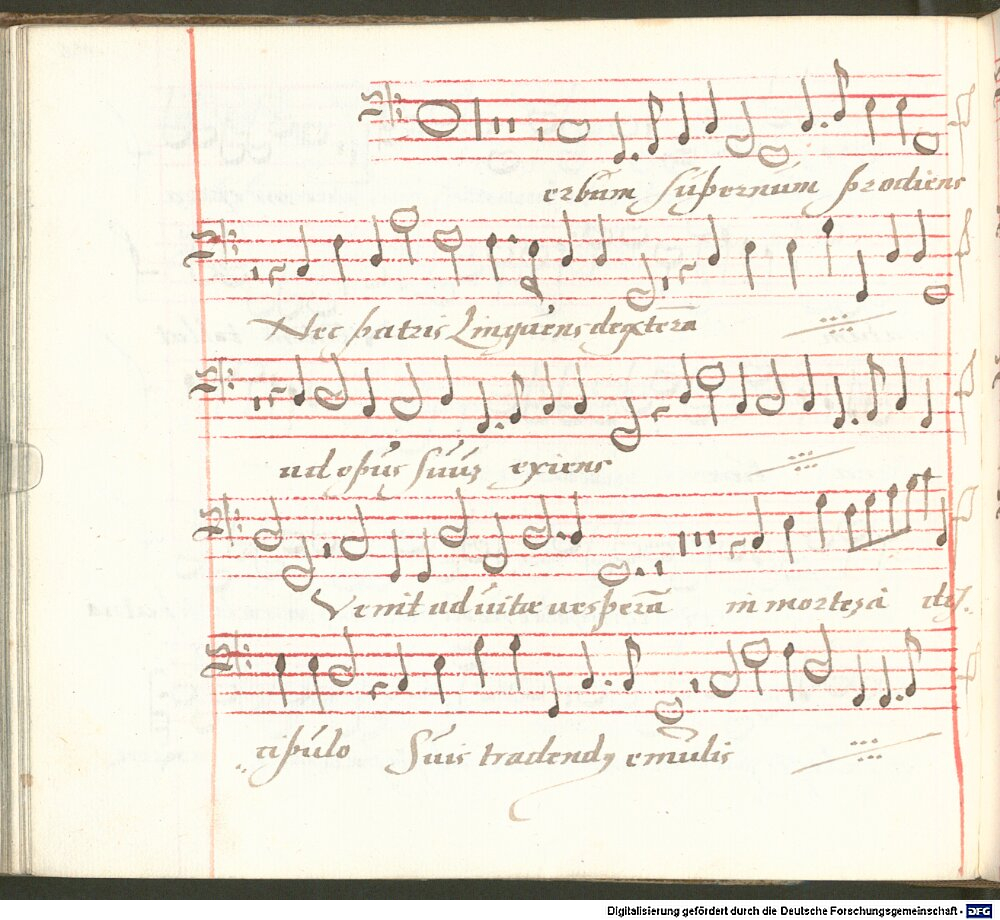 erbum supernum prodiens
Nec patris Linquens dexterā
ad opus suuʒ exiens
Venit ad uitæ uesperā in morteʒ à dis-
cipulo Suis tradendꝯ emulis
Digitalisierung gefördert durch die Deutsche Forschungsgemeinschaft - DFG